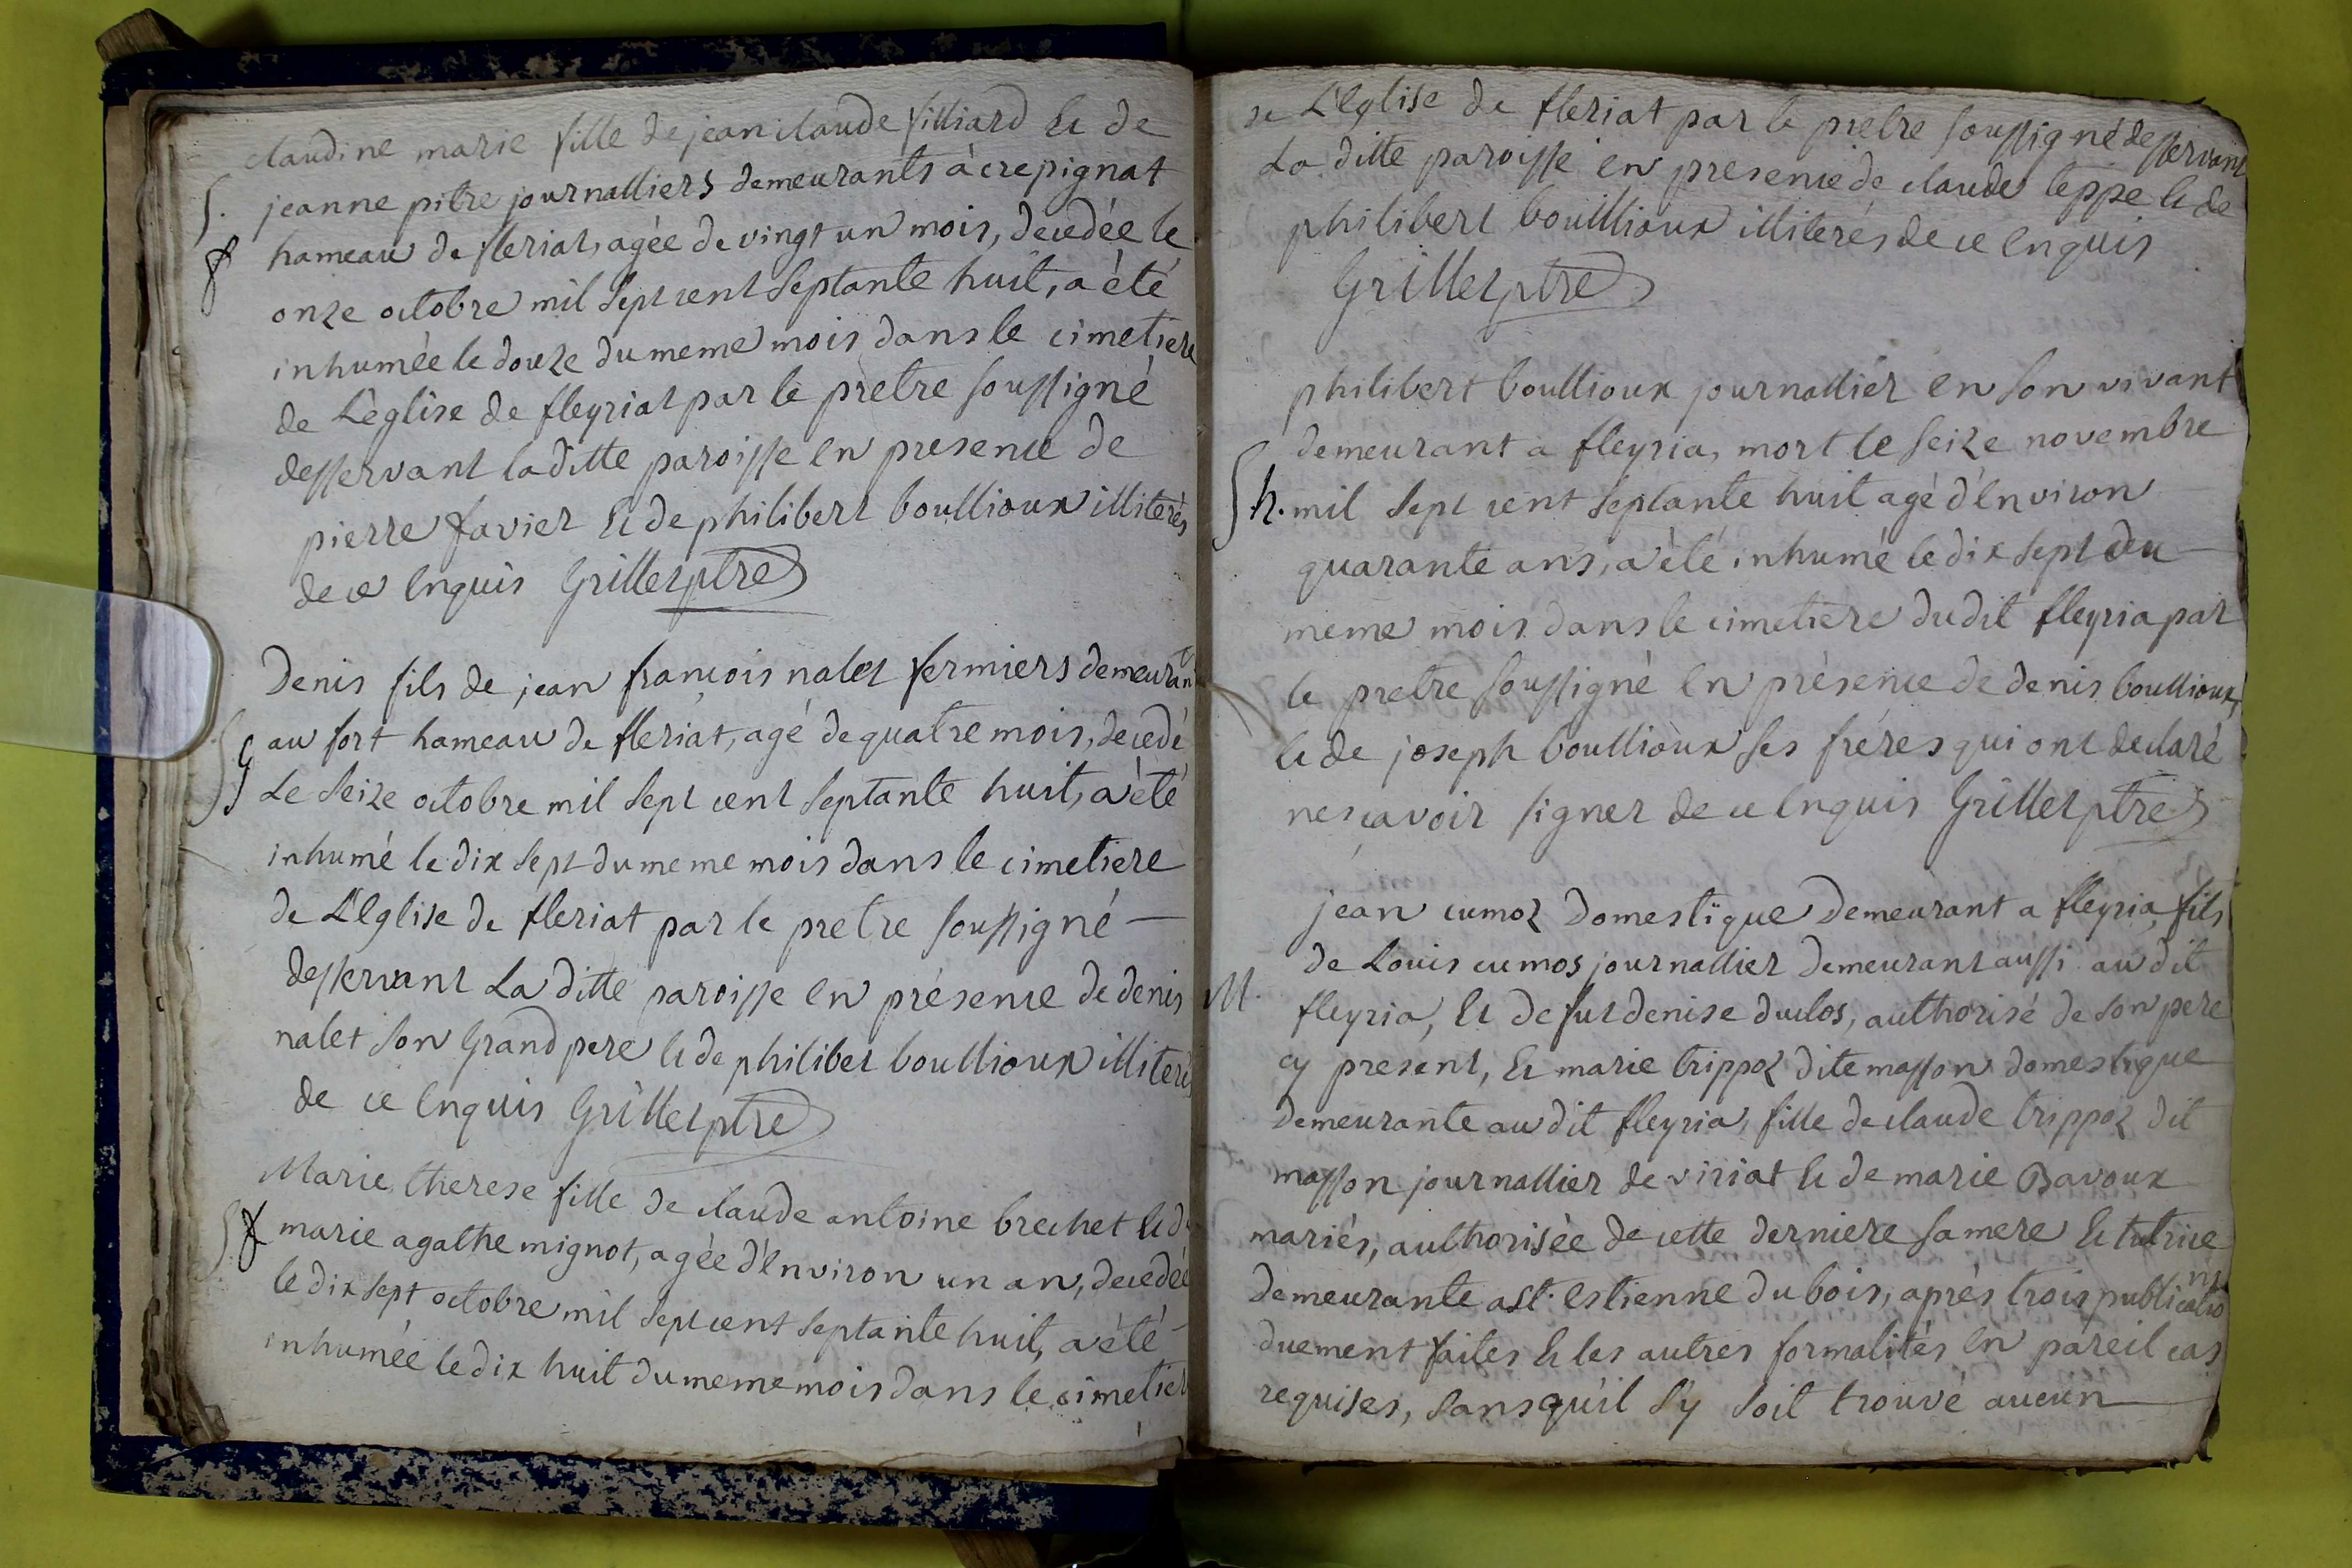 claudine marie fille de jean claude filliard et de
S. jeanne pitre journalliers demeurants à crepignat
f hameau de fleriat, agée de vingt un mois, decedée le
onze octobre mil sept cent septante huit, a été
inhumée le douze du meme mois dans le cimetiere
de L'église de fleyriat par le prètre soussigné
desservant la ditte paroisse en presence de
pierre favier et de philibert boullioux illiterés
de ce enquis Grillet ptre
Denis fils de jean francois nalet fermiers demeurant
au fort hameau de fleriat, agé de quatre mois, decedé
Le seize octobre mil sept cent septante huit, a été
inhumé le dix sept du meme mois dans le cimetiere
de L'Eglise de fleriat par le pretre soussigné
desservant La ditte paroisse en présence de denis
nalet son Grand pere et de philibet boullioux illiterés
de ce enquis Grillet ptre
Marie therese fille de claude antoine brechet et de
S f marie agathe mignot, agée d'environ un an, decedée
le dix sept octobre mil sept cent septante huit, a été
inhumée le dix huit du meme mois dans le cimetier
de L'Eglise de fleriat par le pretre soussigné desservant
La ditte paroisse en presence de claude teppe et de
philibert boullioux illiterés de ce enquis
Grillet ptre
philibert boullioux journallier en son vivant
demeurant a fleyria, mort le seize novembre
S h. mil sept cent septante huit agé d'environ
quarante ans, a été inhumé le dix sept du
meme mois dans le cimetiere dudit fleyria par
le pretre soussigné en présence de denis boullioux,
et de joseph boullioux ses fréres qui ont declaré
ne scavoir signer de ce enquis Grillet ptre
jean cumoz domestique demeurant a fleyria, fils
de Louis cumos journallier demeurant aussi au dit
M. fleyria, et de fut denise duclos, authorisé de son pere
cy present, et marie trippoz dite masson domestique
demeurante au dit fleyria, fille de claude trippoz dit
masson journallier de viriat et de marie Bavoux
mariés, authorisée de cette derniere sa mere et tutrice
demeurante a st. estienne du bois, après trois publications
duement faites et les autres formalités en pareil cas
requises, sans qu'il s'y soit trouvé aucun